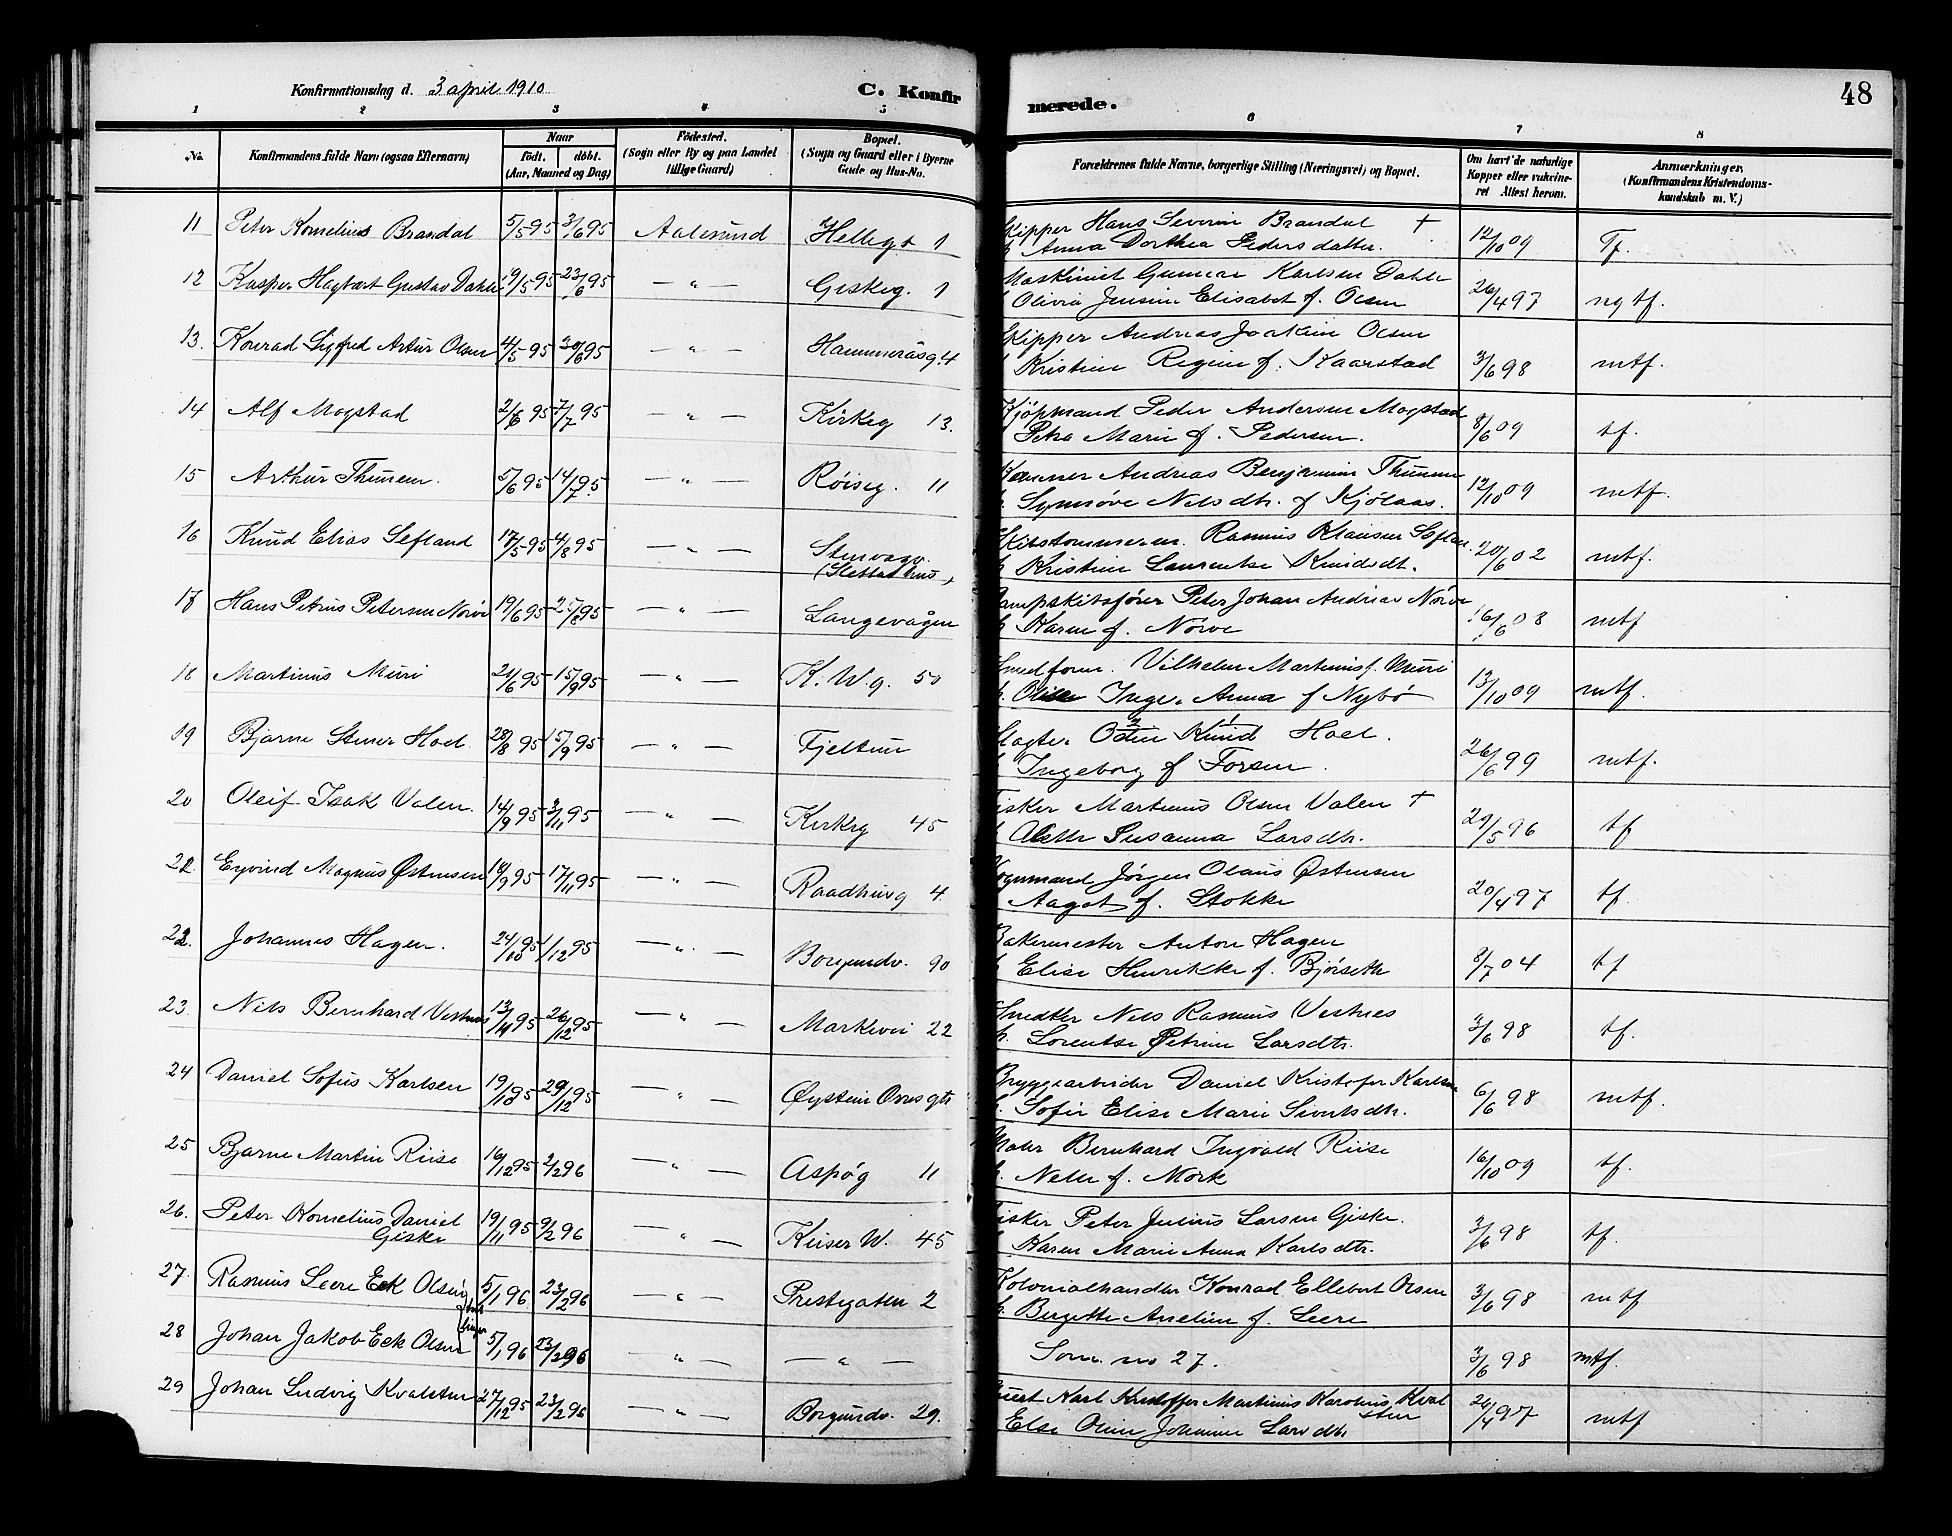 Konfirmationsdag d. 3 april 1910
C. Konfirmerede.
48
1 2 3 4 5 6 7 8
No. Konfirmandens fulde Navn (ogsaa Efternavn) Naar födt. döbt. (Aar, Maaned og Dag) Födested. (Sogn eller By og paa Landet tillige Gaard) Bopæl. (Sogn og Gaard eller i Byerne Gade og Hus-No. Forældrenes fulde Navne, borgerlige Stilling (Næringsvei) og Bopæl. Om havt de naturlige Kopper eller vakcineret Attest herom. Anmærkninger, (Konfirmandens Kristendomskundskab m. V.)
11 Peter Kornelius Brandal 5/5 95 3/6 95 Aalesund Hellegt 1 Skipper Hans Severin Brandal †
Anna Dorthea Pedersdatter. 12/10 09 Tf.
12 Kasper Hagbart Gustav Dahle 19/5 95 23/6 95 — " — Giskeg. 1 Maskinist Gunnar Karlsen Dahle
Olivia Jensine Elisabet f. Olsen 26/4 97 ng tf.
13. Konrad Sigfred Artur Olsen 4/5 95 30/6 95 — " — Hammeråsg. 4 Skipper Andreas Joakim Olsen
Kristine Regine f. Kaarstad 3/6 98 mtf.
14 Alf Mogstad 2/6 95 7/7 95 — " — Kirkeg 13. Kjöpmand Peder Andersen Mogstad
Petra Marie f. Pedersen. 8/6 09 tf.
15 Arthur Thunem. 5/6 95 14/7 95 — " — Röiseg. 11 Andreas Benjamin Thunem
Synnöve Nelsdtr. f. Kjölaas. 12/10 09 mtf.
16 Knud Elias Sefland 17/5 95 4/8 95 — " — Stenvaag.
(Slettat hus) Skibstömmerm. Rasmus Klausen
Kristine Laurentse Knudsdt. 20/6 02 mtf.
17 Hans Petrus Petersen Nörve 19/6 95 25/8 95 — " — Langevågen Dampskibsförer Peter Johan Andreas Nörve
Karen f. Nörve 16/6 08 mtf
18 Martinus Muri 21/6 95 15/9 95 — " — K. W. g. 50 Smedform. Vilhelm Martinus f. Muri
Inge. Anna f Nybö 13/10 09 mtf.
19 Bjarne Stener Hoel 28/8 95 15/9 95 — " — Fjeltun Slagter Odin Knud Hoel.
Ingeborg f Forsen. 26/6 99 mtf.
20 Oleif Isak Valen. 14/9 95 3/11 95 — " — Kirkeg 45 Fisker Martinus Olsen Valen †
Susanna Larsdtr. 29/5 96 tf
Eyvind Magnus Östensen 18/9 95 17/11 95 — " — Raadhusg 4 Vognmand Jörgen Olaus Östensen
Aagot f. Stokke 20/4 97 tf.
22. Johannes Hagen. 24/10 95 1/12 95 — " — Borgundv. 90 Bakermester Anton Hagen
Elise Henrikke f. Björseth 8/7 04 tf
23 Nils Bernhard Vestnes 13/11 95 26/12 95 — " — Markevei 22 Nels Rasmus Vestnes
Lorentse Petrine Larsdtr. 3/6 98 tf.
24 Daniel Sofus Karlsen 19/10 95 29/12 95 — " — Öystein Orresgt Bryggearbeider Daniel Kristofer Karlsen
Sofie Elise Marie Sivertsdtr. 6/6 98 mtf.
25 Bjarne Martin Riise 16/12 95 2/2 96 — " — Aspög 11 Maler Bernhard Ingvald Riise
Nelle f. Mork 16/10 09 tf.
26. Peter Kornelius Daniel
Giske 19/11 95 9/2 96 — " — Keiser W. 45 Fisker Peter Julius Larsen Giske.
Karen Marie Anna Karlsdtr. 3/6 98 tf.
27. Rasmus Leere Eck Olsen 5/1 96 23/2 96 — " — Prestegaten 2 Kolonialhandler Konrad Ellebert Olsen
Bergitte Aneline f. Leere 3/6 98 mtf
28 Johan Jakob Eck Olsen 5/1 96 23/2 96 — " — — " — Som no 27. 3/6 98 mtf.
29 Johan Ludvig Kvalsten 27/12 95 23/2 96 — " — Borgundv. 29. Karl Kristoffer Martinus Karolius Kvalsten
Else Oline Johanne Larsdtr 26/4 97 mtf